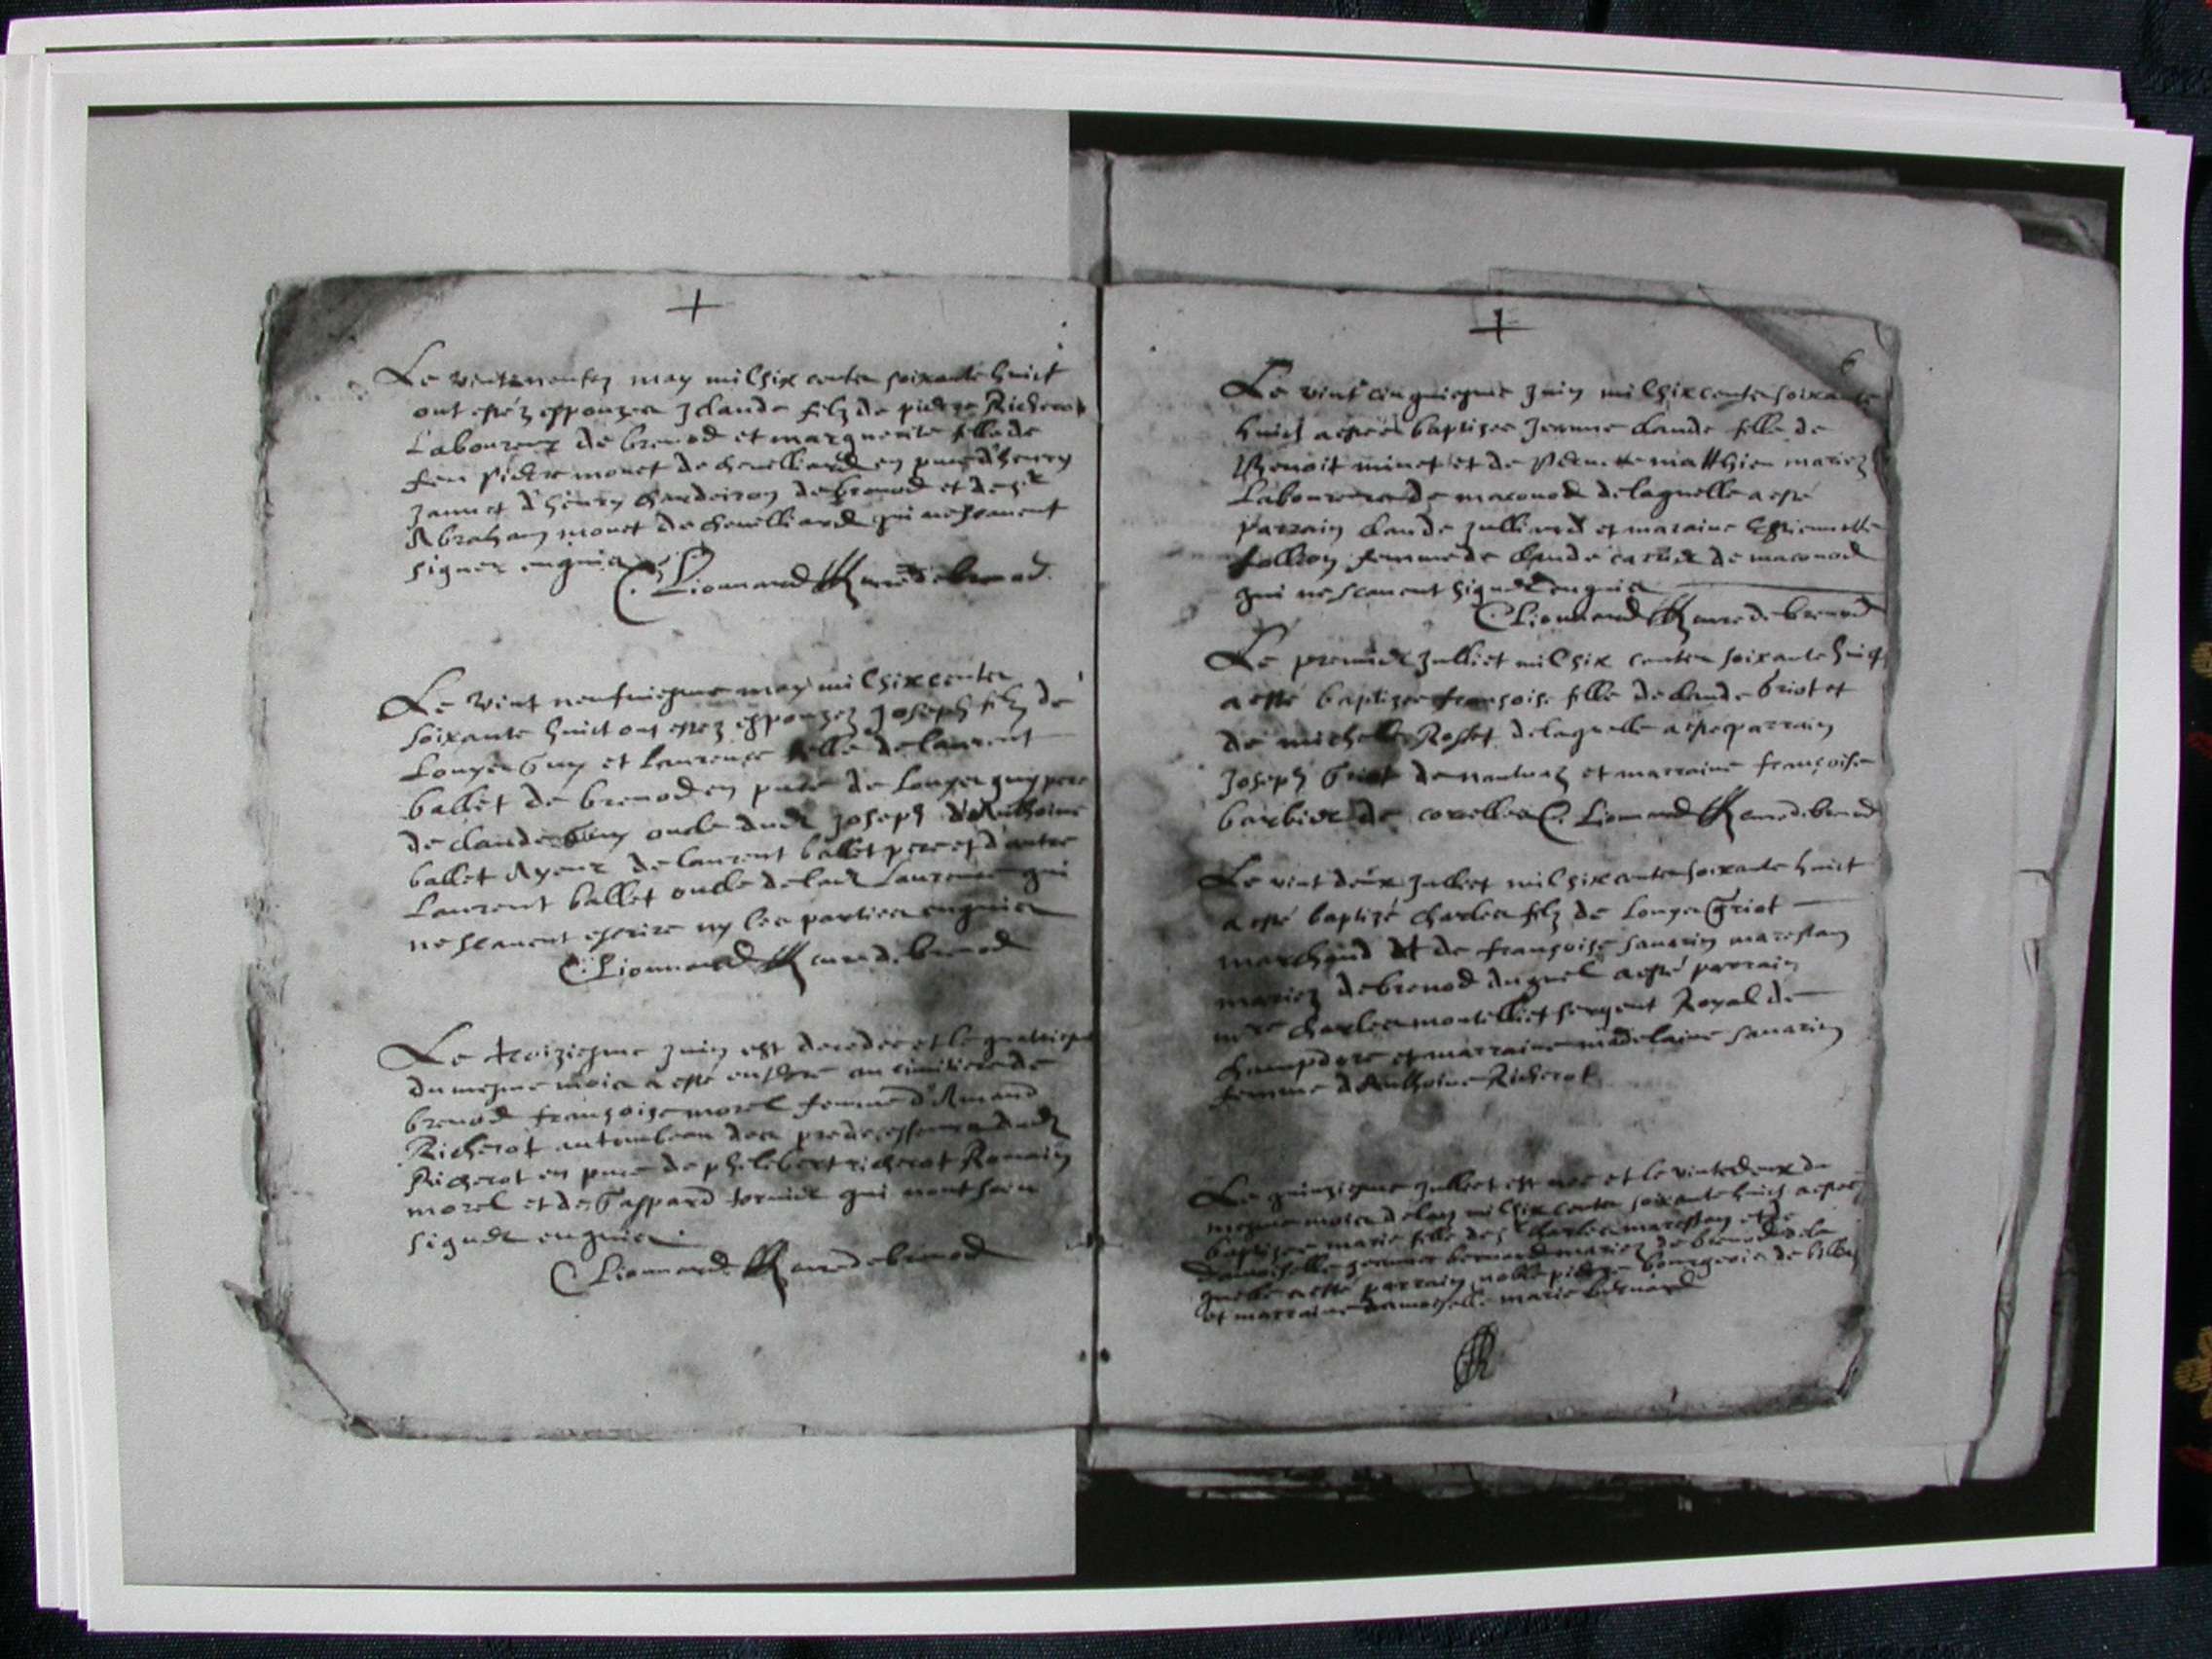 Le vint neufz may mil six centz soixante huict
ont estéz espouzez Claude filz de pierre Richerot
Laboureur de brenod et marguerite fille de
feu pierre monet de chevelliard en pnce d'henry
d'henry de brenod et de
Abraham monet de chevelliard qui ne scavent
signer enquis
C. Lionnard curé de brenod
Le vint neufviesme may mil six centz
soixante huict ont estez espouzez Joseph filz de
Louys Guy et Laurence fille de laurent
ballet de brenod en pnce de Louys guy pere
de claude Guy oncle dudt Joseph d'Anthoine
ballet Ayeux de laurent ballet pere et d'autre
Laurent ballet oncle de ladt Laurence qui
ne scavent escrire ny les parties enquis
C. Lionnard curé de brenod
Le troiziesme Juin est decedee et le quatriesme
du mesme mois a esté enterré au cimitiere de
brenod françoise morel femme d'Armand
Richerot au tombeau des predecesseurs dudt
Richerot en pnce de philibert richerot Romain
morel et de Gaspard qui n'ont sceu
signer enquis
C. Lionnard curé de brenod
6
Le vint cinquiesme Juin mil six centz soixante
huict a esteé baptizee Jeanne claude fille de
Benoit minet et de Pernette matthieu mariez
Laboureurs de maconod de laquelle a esté
Parrain claude Julliard et maraine Estiennette
femme de claude de maconod
qui ne scavent signer enquis
C Lionnard curé de brenod
Le premier Julliet mil six centz soixante huict
a esté baptizee françoise fille de claude Griot et
de michelle Rosset de laquelle a esté parrain
Joseph Griot de nantuaz et marraine françoise
barbier de corcelles C. Lionnard curé de brenod
Le vint deux Julliet mil six centz soixante huict
a esté baptizé charles filz de Louys Griot
marchand et de françoise Savarin
mariez de brenod duquel a esté parrain
mre charles montilliet sergent Royal de
champdore et marraine madelaine Savarin
femme d'Anthoine Richerot
Le quinziesme Julliet est nee et le vint deux du
mesme mois de l'an mil six centz soixante huict a estee
baptizee marie fille de sr charles et de
damoiselle bernard mariez de brenod de la
quelle a esté parrain noble pierre bourgeois de
et marraine damoyselle marie bernard